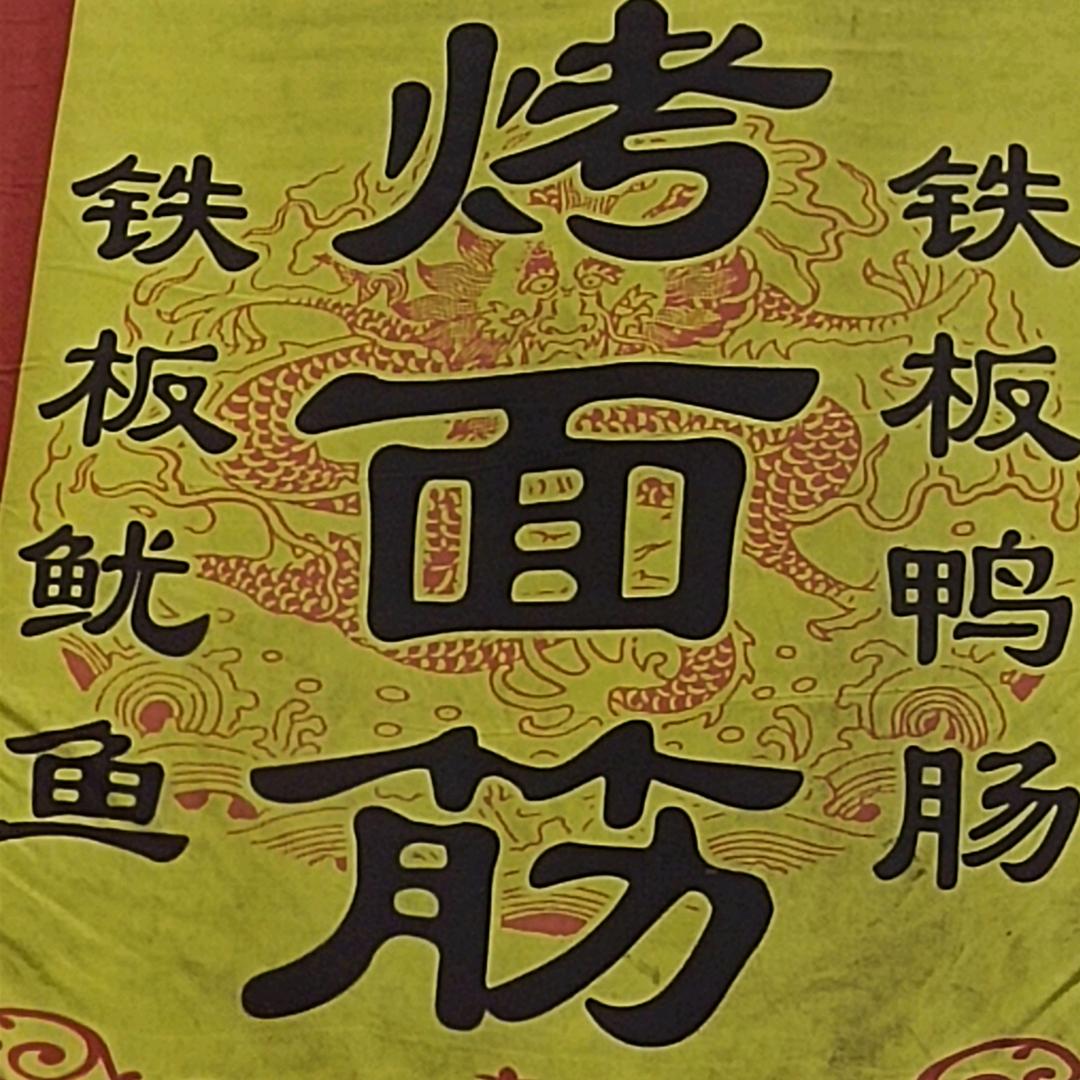 烤面筋
铁板鱿鱼
铁板鸭肠